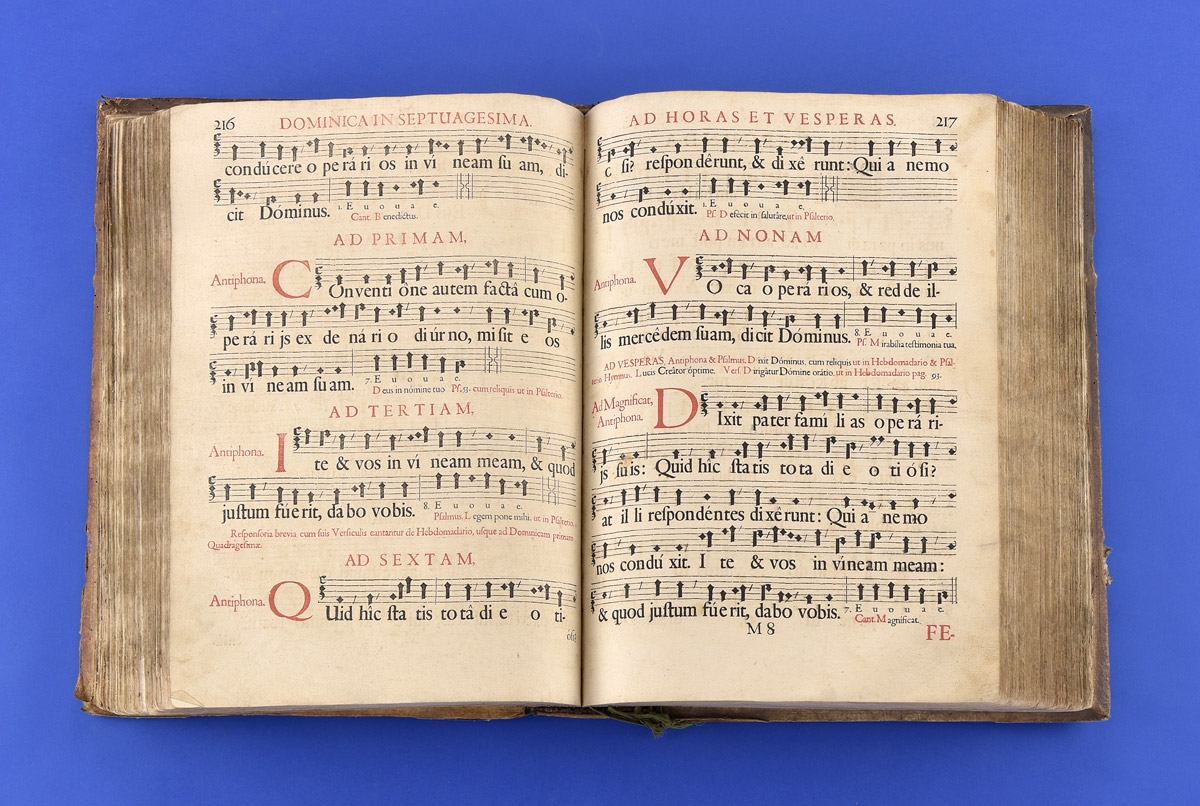 216 DOMINICA IN SEPTUAGESIMA.
condúcere o pe rá ri os in ví neam su am, di-
cit Dóminus. 1. E u o u a e.
Cant. B enedictus.
AD PRIMAM,
Antiphona. C Onventi óne autem factâ cum o-
pe rá ri js ex de ná ri o di úr no, mi sit e os
in ví ne am su am. 7. E u o u a e.
D eus in nómine tuo Ps. 53. cum reliquis ut in Psalterio.
AD TERTIAM,
Antiphona. I te & vos in ví neam meam, & quod
justum fúe rit, da bo vobis. 8. E u o u a e.
Psalmus. L egem pone mihi, ut in Psalterio.
Responsoria brevia cum suis Versiculis cantantur de Hebdomadario, usque ad Dominicam primam
Quadragesimæ.
AD SEXTAM,
Antiphona. Q Uid hîc sta tis to tâ di e o ti-
ósi?
AD HORAS ET VESPERAS. 217
si? respon dêrunt, & di xê runt: Qui a nemo
nos condúxit. 1. E u o u a e.
Ps. D efécit in salutáre, ut in Psalterio.
AD NONAM
Antiphona. V O ca o perá ri os, & red de il-
lis mercêdem suam, dicit Dóminus. 8. E u o u a e.
Ps. M irabilia testimonia tua.
AD VESPERAS, Antiphona & Psalmus. D ixit Dóminus. cum reliquis ut in Hebdomadario & Psal-
terio Hymnus. L ucis Creátor óptime. Vers D irigátur Dómine orátio. ut in Hebdomadario pag. 93.
Ad Magnificat,
Antiphona. D Ixit pa ter famí li as o pe rá ri-
js su is: Quid hîc sta tis to ta di e o ti ó si?
at il li respondéntes di xê runt: Qui a ne mo
nos condú xit. I te & vos in víneam meam:
& quod justum fúe rit, dabo vobis. 7. E u o u a e.
Cant. M agnificat.
M 8
FE-